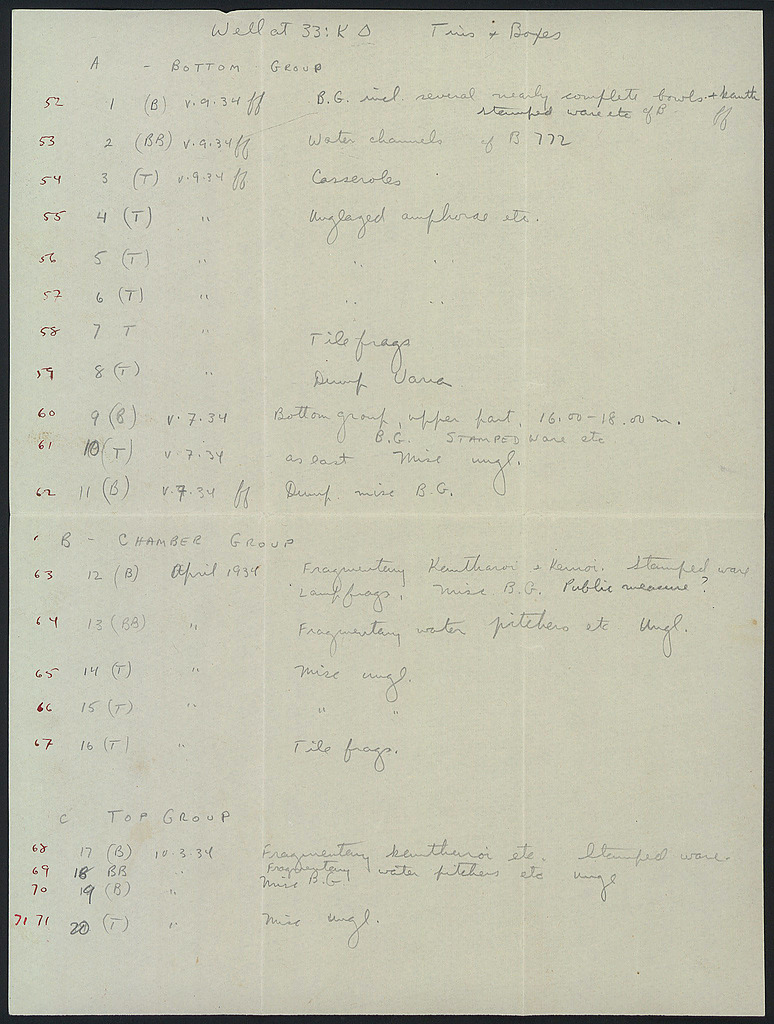 Well at 33: K Δ Tins & Boxes
A - BOTTOM GROUP
52 1 (B) V.9.34 ff B.G. incl. several nearly complete bowls + kanth
stamped ware etc of B ff
53 2 (BB) V.9.34 ff Water channels of B 772
54 3 (T) V.9.34 ff Casseroles
55 4 (T) " Unglazed amphorae etc.
56 5 (T) " " "
57 6 (T) " " "
58 7 T " Tile frags
59 8 (T) " Dump Varia
60 9 (B) V.7.34 Bottom group, upper part, 16.00-18.00 m.
B.G. STAMPED ware etc
61 10 (T) V.7.34 as last Misc ungl.
62 11 (B) V.7.34 ff Dump. misc B.G.
B - CHAMBER GROUP
63 12 (B) April 1934 Fragmentary Kantharoi & Kernoi. Stamped ware
Lamp frags, Misc B.G. Public measure?
64 13 (BB) " Fragmentary water pitchers etc Ungl.
65 14 (T) " Misc ungl.
66 15 (T) " " "
67 16 (T) " Tile frags.
C TOP GROUP
68 17 (B) 10.3.34 Fragmentary kantharoi etc. Stamped ware.
69 18 BB " Fragmentary water pitchers etc ungl
70 19 (B) " Misc B.G.
71 71 20 (T) " Misc ungl.